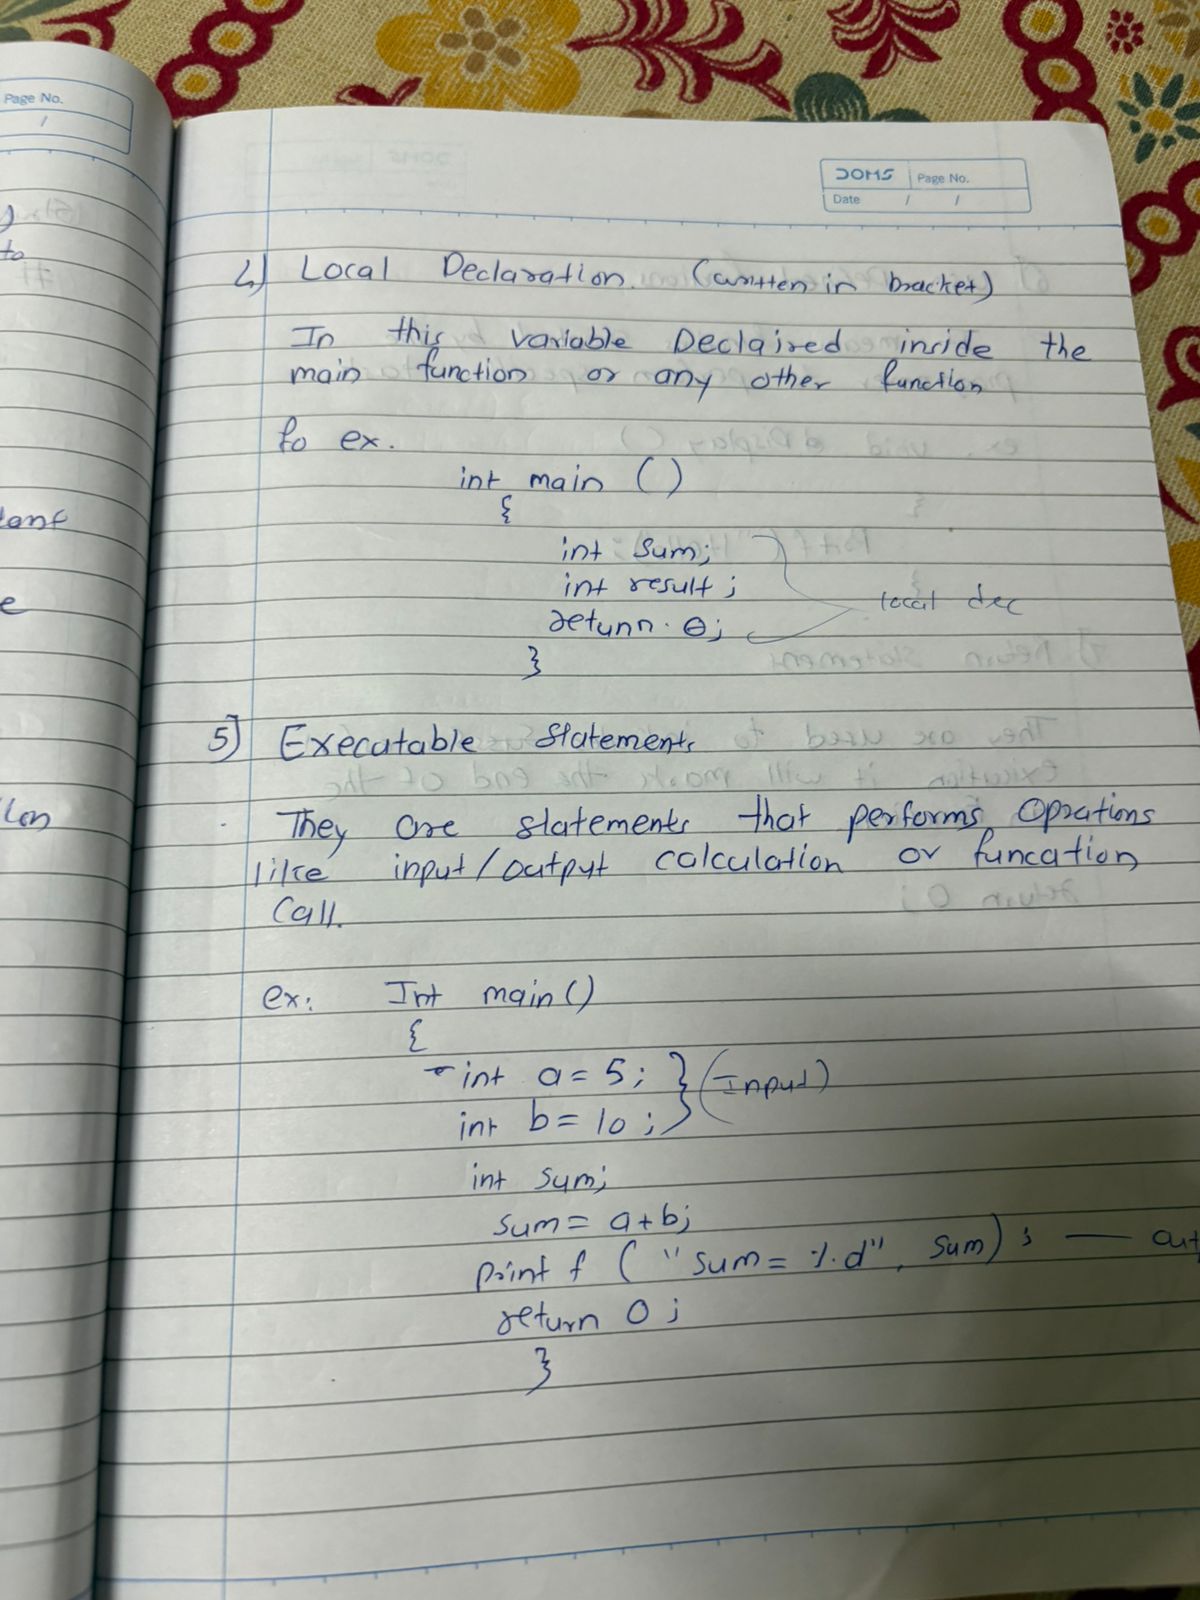 Page No.
/
to
e
DOMS Page No.
Date / /
4) Local Declaration. (written in bracket)
In this variable Declaired inside the
main function or any other function
fo ex.
int main ()
{
int sum;
int result;
return 0;
local dec
}
5) Executable Statements
They are statements that performs Oprations
like input/output calculation or funcation
Call.
ex: Int main()
{
int a = 5; } (Input)
int b = 10; }
int sum;
sum = a+b;
printf ("sum = %d", sum); — out
return 0;
}